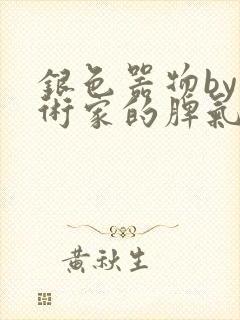 銀色器物by
術家的脾氣
黃秋生